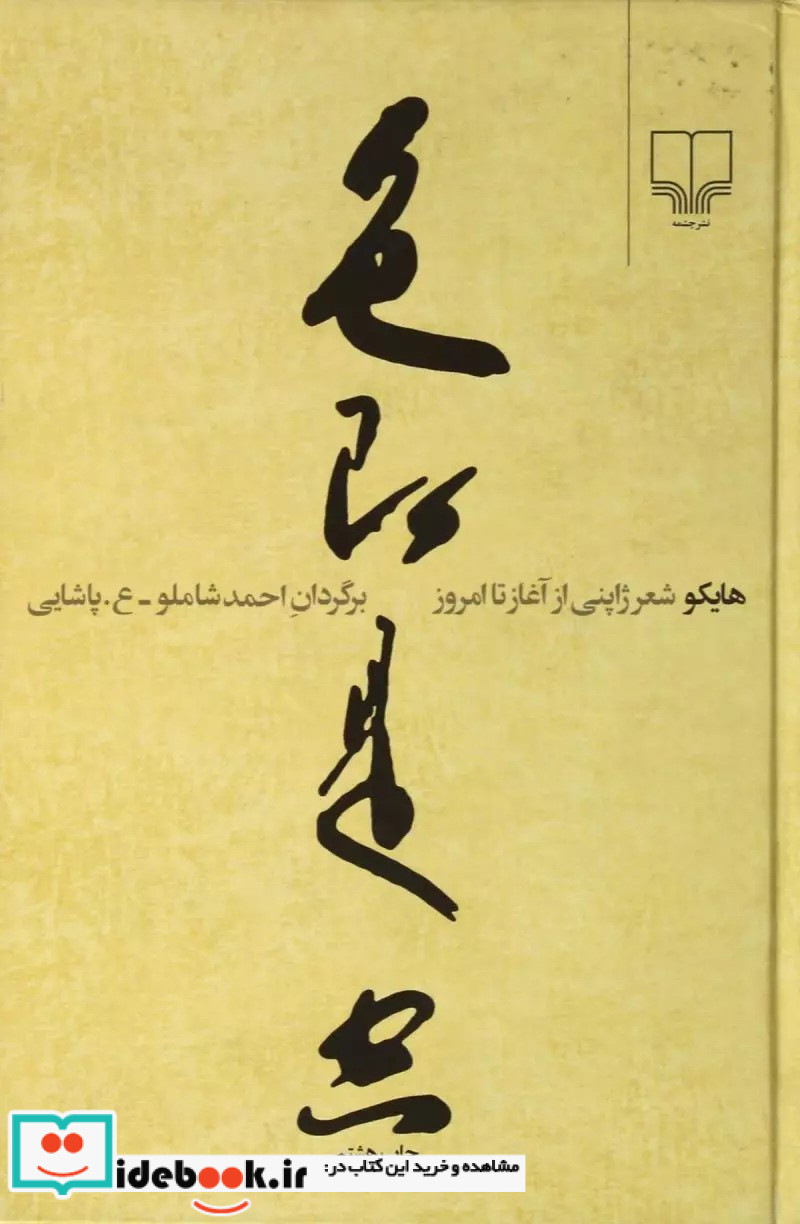 نشرچشمه
色
即
是
空
هایکو شعر ژاپنی از آغاز تا امروز
برگردانِ احمد شاملو - ع. پاشایی
چاپ هشتم
مشاهده و خرید این کتاب در:
idebook.ir